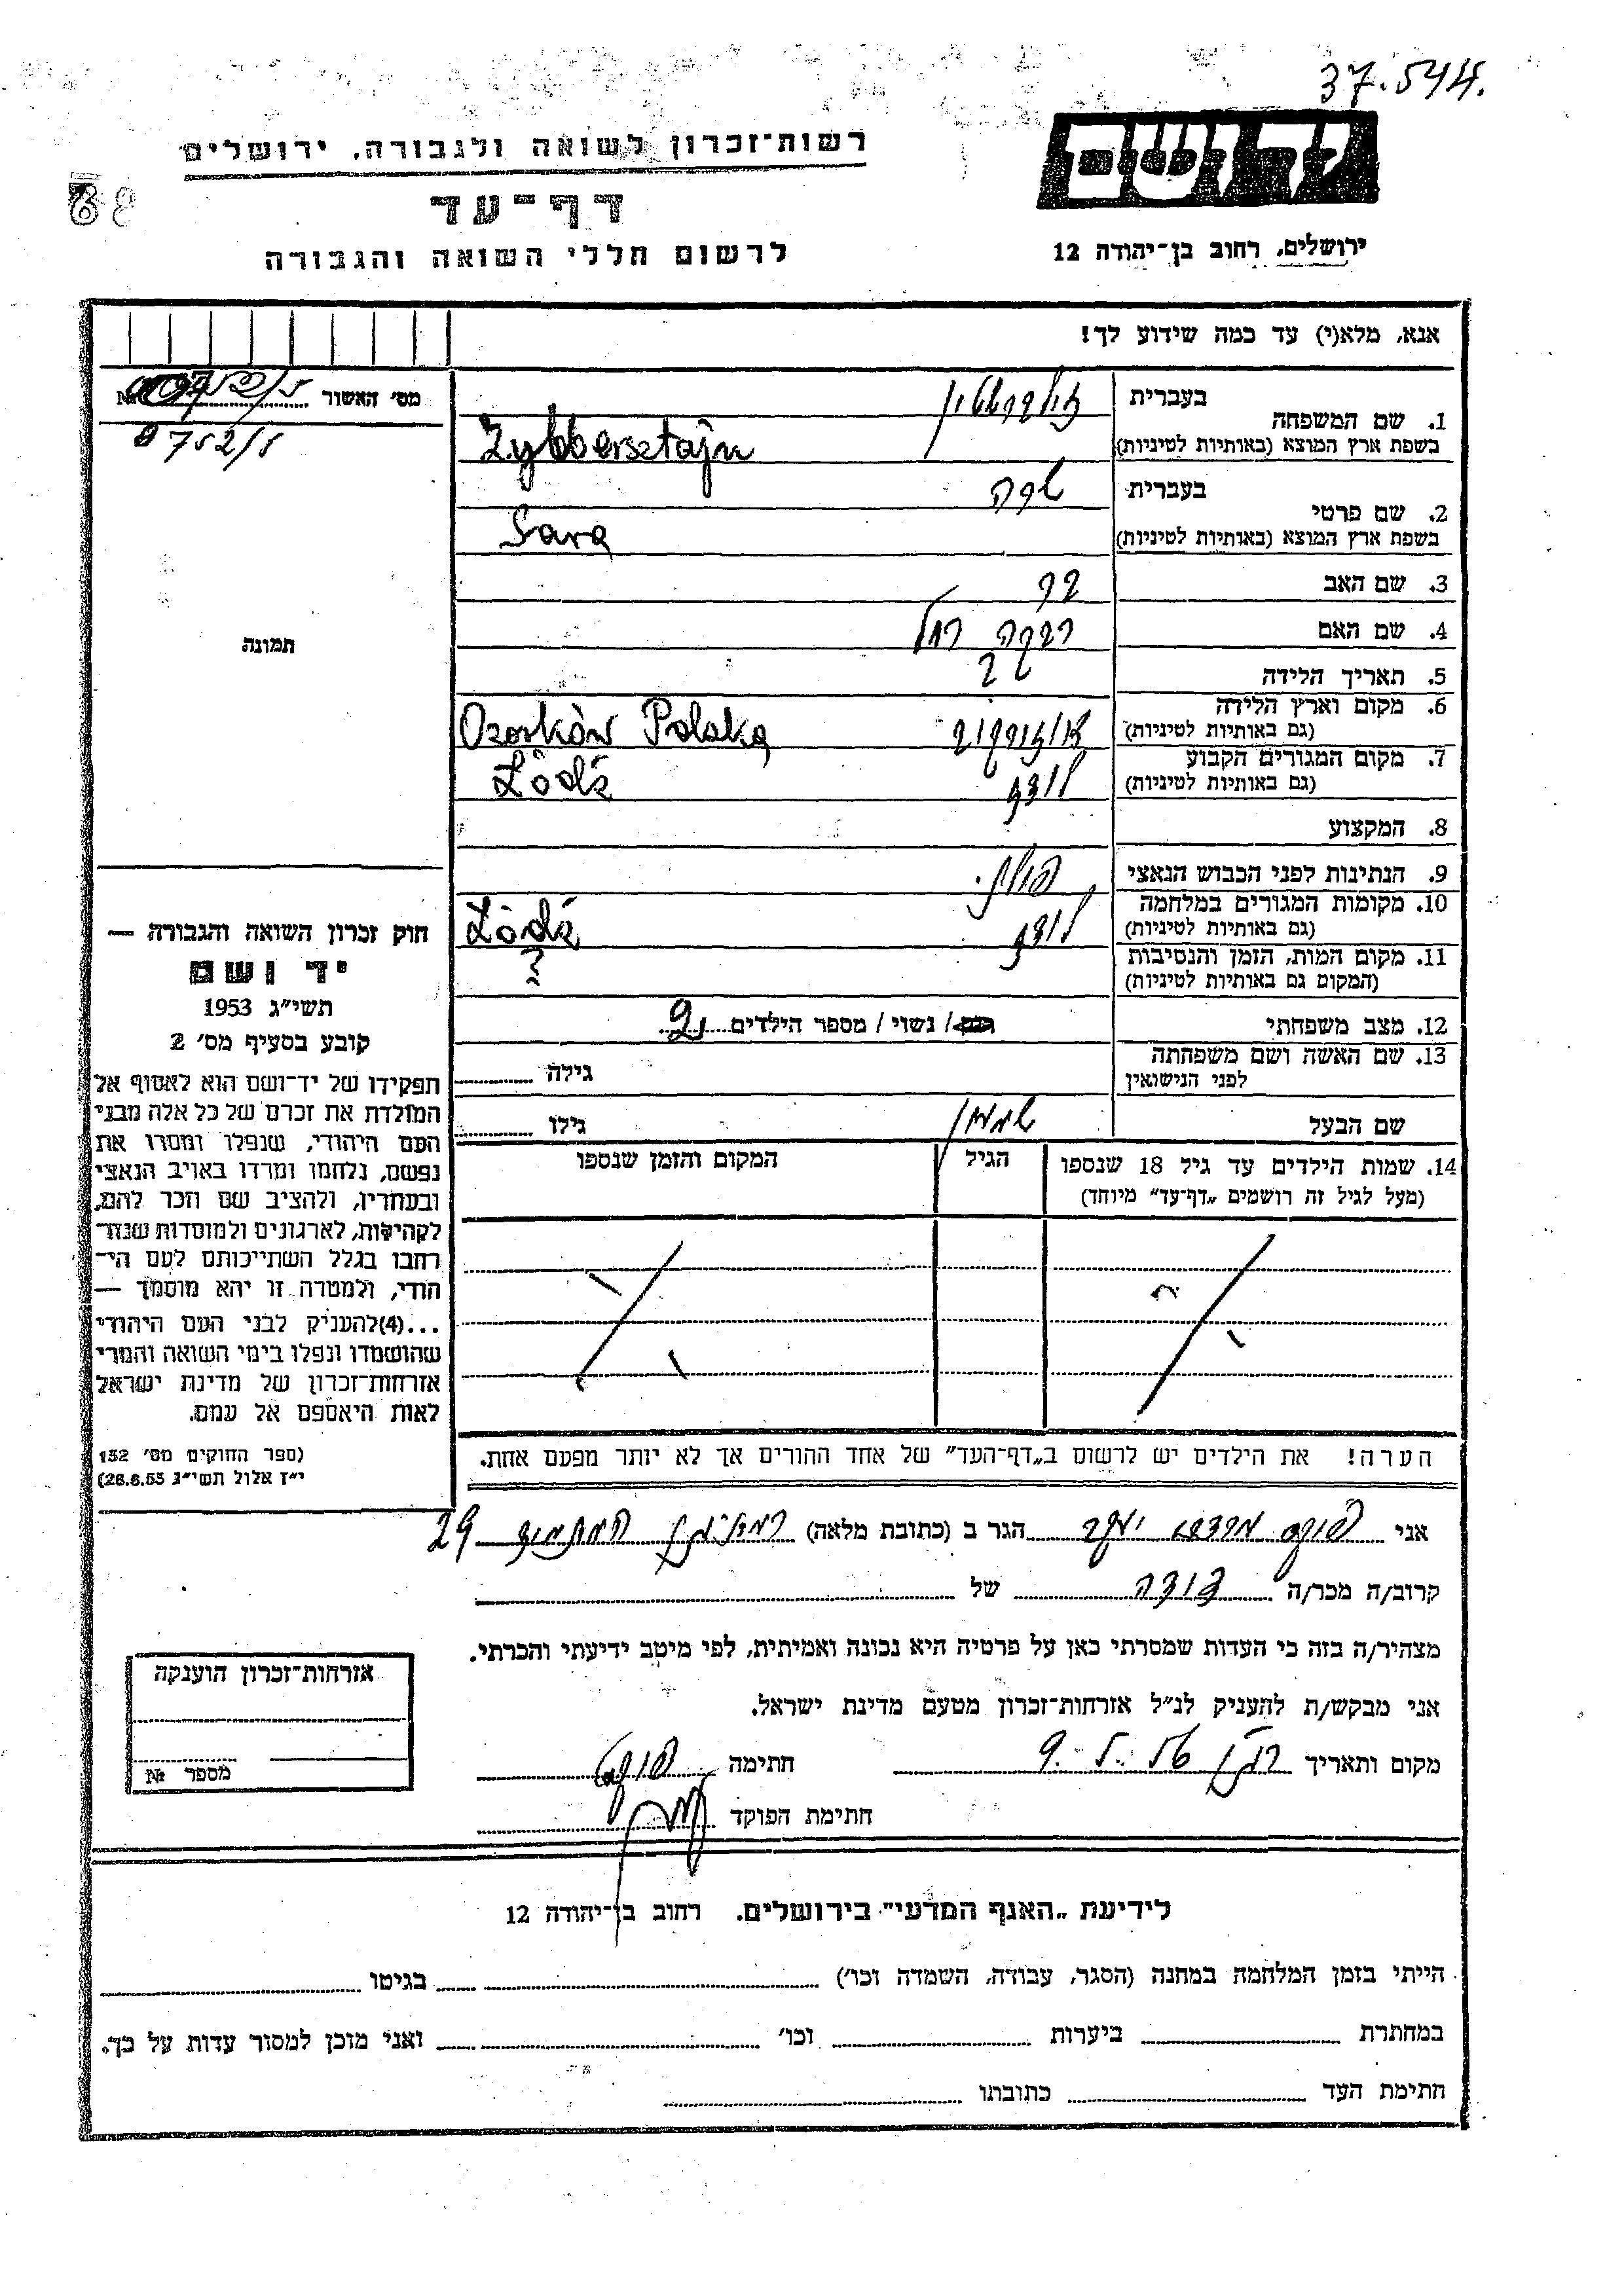 37.544.
יד ושם
רשות־זכרון לשואה ולגבורה, ירושלים
דף־עד
לרשום חללי השואה והגבורה
ירושלים, רחוב בן־יהודה 12
אנא, מלא(י) עד כמה שידוע לך!
מס׳ האשור №
9752/5
תמונה
1. שם המשפחה
בעברית זילברשטיין
בשפת ארץ המוצא (באותיות לטיניות) Zylbersztajn
2. שם פרטי
בעברית שרה
בשפת ארץ המוצא (באותיות לטיניות) Sara
3. שם האב
4. שם האם רבקה רחל
5. תאריך הלידה ?
6. מקום וארץ הלידה
(גם באותיות לטיניות) אוזורקוב Ozorków Polska
7. מקום המגורים הקבוע
(גם באותיות לטיניות) לודז Łódź
8. המקצוע
9. הנתינות לפני הכבוש הנאצי פולנית.
10. מקומות המגורים במלחמה
(גם באותיות לטיניות) לודז Łódź
11. מקום המות, הזמן והנסיבות
(המקום גם באותיות לטיניות) ?
12. מצב משפחתי רווק / נשוי / מספר הילדים 2
13. שם האשה ושם משפחתה
לפני הנישואין גילה
שם הבעל גילו
14. שמות הילדים עד גיל 18 שנספו
(מעל לגיל זה רושמים „דף־עד״ מיוחד)
הגיל
המקום והזמן שנספו
הערה! את הילדים יש לרשום ב„דף־העד״ של אחד ההורים אך לא יותר מפעם אחת.
חוק זכרון השואה והגבורה —
יד ושם
תשי״ג 1953
קובע בסעיף מס׳ 2
תפקידו של יד־ושם הוא לאסוף אל
המולדת את זכרם של כל אלה מבני
העם היהודי, שנפלו ומסרו את
נפשם, נלחמו ומרדו באויב הנאצי
ובעוזריו, ולהציב שם וזכר להם,
לקהילות, לארגונים ולמוסדות שנח־
רבו בגלל השתייכותם לעם הי־
הודי, ולמטרה זו יהא מוסמך —
...(4)להעניק לבני העם היהודי
שהושמדו ונפלו בימי השואה והמרי
אזרחות־זכרון של מדינת ישראל
לאות היאספם אל עמם.
(ספר החוקים מס׳ 132
י״ז אלול תשי״ג 28.8.53)
אני הגר ב (כתובת מלאה) 29
קרוב/ה מכר/ה דודה של
מצהיר/ה בזה כי העדות שמסרתי כאן על פרטיה היא נכונה ואמיתית, לפי מיטב ידיעתי והכרתי.
אני מבקש/ת להעניק לנ״ל אזרחות־זכרון מטעם מדינת ישראל.
מקום ותאריך חתימה
חתימת הפוקד
אזרחות־זכרון הוענקה
מספר №
לידיעת „האגף המדעי״ בירושלים. רחוב בן־יהודה 12
הייתי בזמן המלחמה במחנה (הסגר, עבודה, השמדה וכו׳) בגיטו
במחתרת ביערות וכו׳ ואני מוכן למסור עדות על כך.
חתימת העד כתובתו